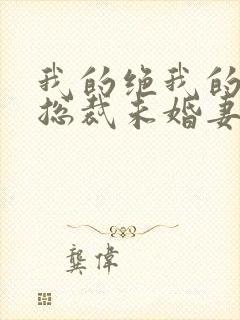 我的绝我的
总裁未婚妻
龚伟